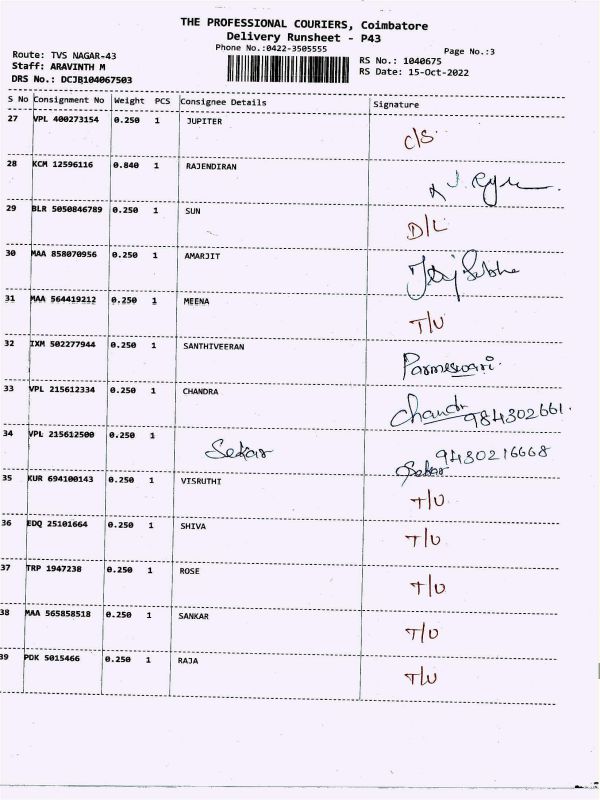 THE PROFESSIONAL COURIERS, Coimbatore
Delivery Runsheet - P43
Phone No.:0422-3505555
Page No.:3
Route: TVS NAGAR-43
RS No.: 1040675
Staff: ARAVINTH M
RS Date: 15-Oct-2022
DRS No.: DCJB104067503
S No Consignment No Weight PCS Consignee Details Signature
27 VPL 400273154 0.250 1 JUPITER C/S
28 KCM 12596116 0.840 1 RAJENDIRAN
29 BLR 5050846789 0.250 1 SUN D/L
30 MAA 858070956 0.250 1 AMARJIT
31 MAA 564419212 0.250 1 MEENA T/U
32 IXM 502277944 0.250 1 SANTHIVEERAN Parmeswari
33 VPL 215612334 0.250 1 CHANDRA Chandr 984302661.
34 VPL 215612500 0.250 1 Sekar Sekar 9430216668
35 KUR 694100143 0.250 1 VISRUTHI T/U
36 EDQ 25101664 0.250 1 SHIVA T/U
37 TRP 1947238 0.250 1 ROSE T/U
38 MAA 565858518 0.250 1 SANKAR T/U
39 PDK 5015466 0.250 1 RAJA T/U